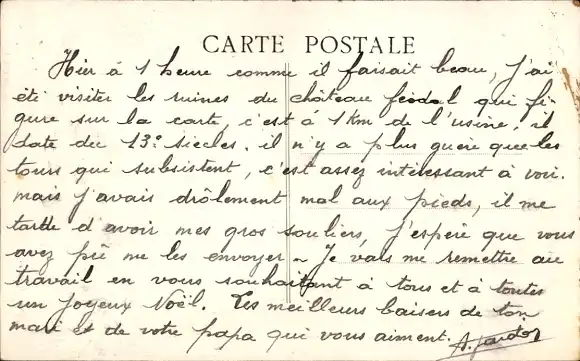 CARTE POSTALE
Hier à 1 heure comme il faisait beau, j'ai
été visiter les ruines du château féodal qui fi-
gure sur la carte, c'est à 1 km de l'usine, il
date du 13e siècles. il n'y a plus guère que les
tours qui subsistent, c'est assez intéressant à voir.
mais j'avais drôlement mal aux pieds, il me
tarde d'avoir mes gros souliers, j'espère que vous
avez pû me les envoyer - Je vais me remettre au
travail en vous souhaitant à tous et à toutes
un joyeux Noël. Les meilleurs baisers de ton
mari et de votre papa qui vous aiment.